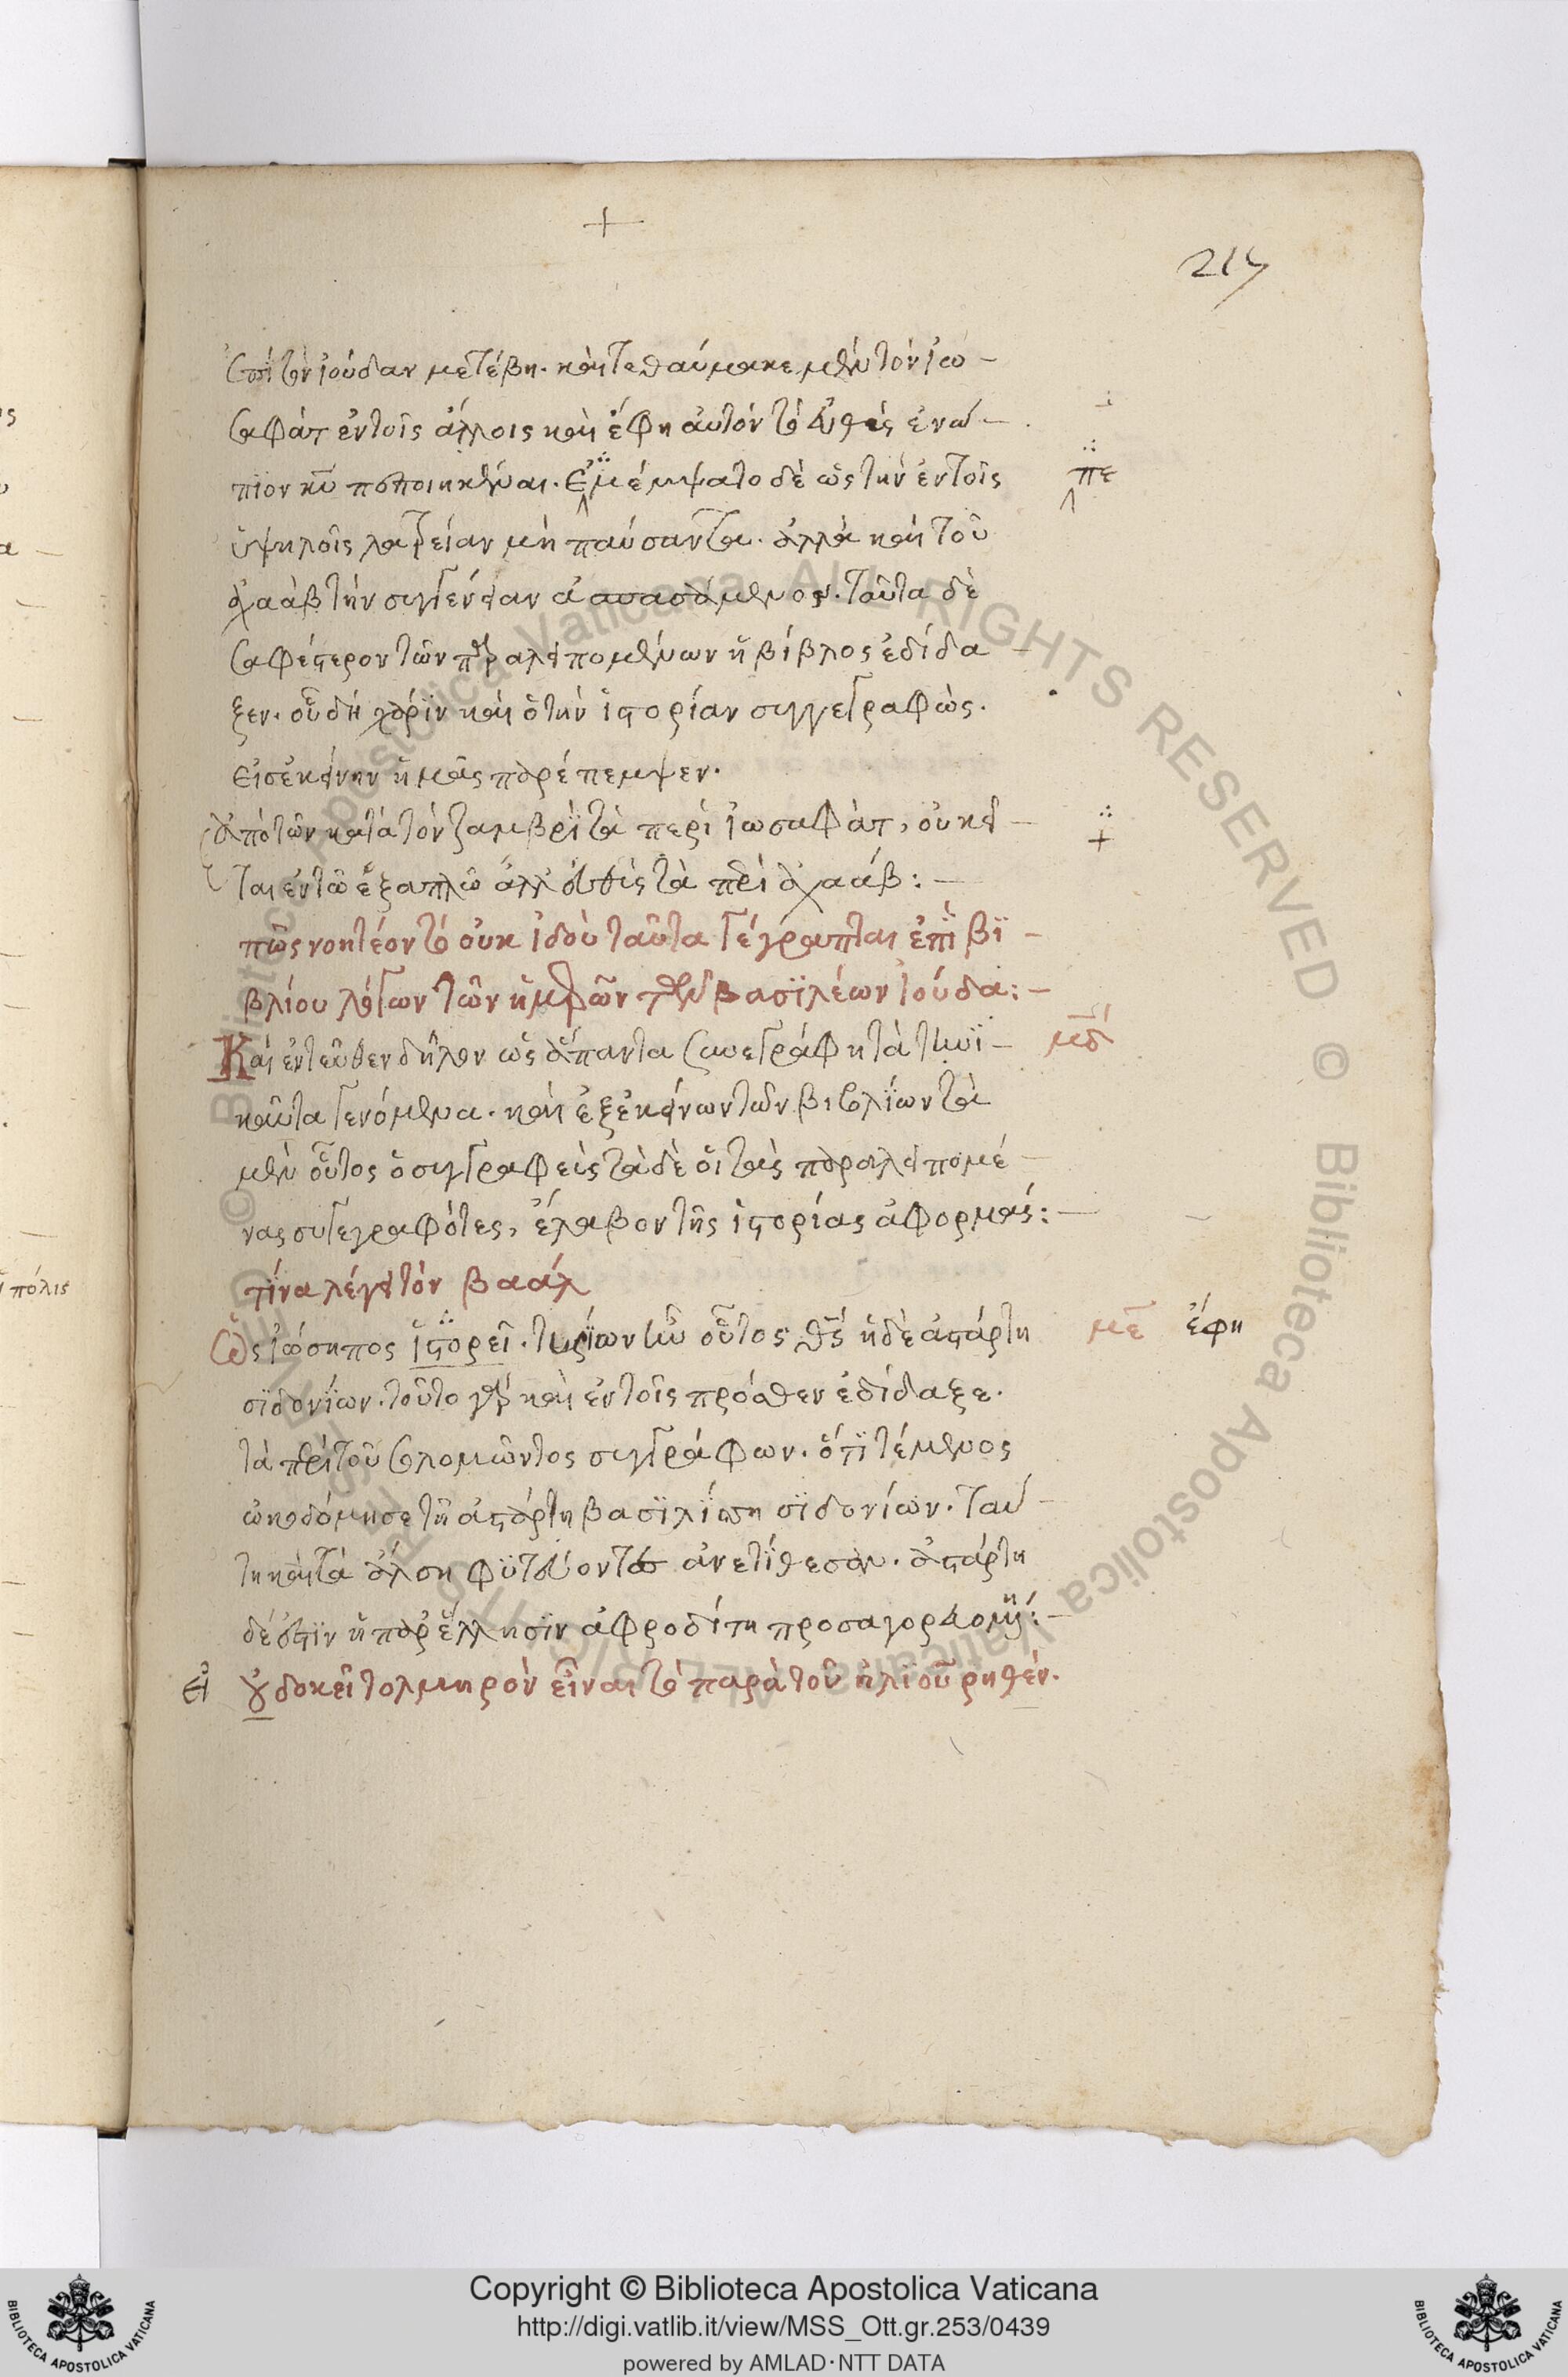 +
217
ἐπὶ τὸν ἰούδαν μετέβη. καὶ τεθαύμακε μὲν τὸν ἰω-
σαφὰτ ἐν τοῖς ἄλλοις καὶ ἔφη αὐτὸν τὸ εὐθὲς ἐνώ-
πιον κυ πεποιηκέναι. ἐμέμψατο δὲ ὡς τὴν ἐν τοῖς
πε
ὑψηλοῖς λατρείαν μὴ παύσαντα. ἀλλὰ καὶ τοῦ
ἀχαὰβ τὴν συγγένειαν
ταῦτα δὲ
σαφέστερον τῶν παραλειπομένων ἡ βίβλος ἐδίδα
ξεν. οὗ δὴ χάριν καὶ ὁ τὴν ἱστορίαν συγγεγραφὼς.
εἰς ἐκείνην ἡμᾶς παρέπεμψεν.
ἀπὸ τῶν κατὰ τὸν ζαμβρὶ τὰ περὶ ἰωσαφὰτ, οὐ κεῖ-
+
ται ἐν τῶ ἑξαπλῶ ἀλλ' εὐθὺς τὰ περὶ ἀχαάβ:-
πῶς νοητέον τὸ οὐκ ἰδοὺ ταῦτα γέγραπται ἐπὶ βι-
βλίου λόγων τῶν ἡμερῶν τῶν βασιλέων ἰούδα:-
Καὶ ἐντεῦθεν δῆλον ὡς ἅπαντα συνεγράφη τὰ τηνι-
μδ
καῦτα γενόμενα. καὶ ἐξ ἐκείνων τῶν βιβλίων τὰ
μὲν οὗτος ὁ συγγραφεὺς τὰ δὲ οἱ τὰς παραλειπομέ-
νας συγγεγραφότες, ἔλαβον τῆς ἱστορίας ἀφορμάς:-
τίνα λέγει τὸν βαάλ
Ὡς ἰώσηπος ἱστορεῖ. τυρίων ἦν οὗτος θς ἡ δὲ ἀστάρτη
με
ἔφη
σιδονίων. τοῦτο γὰρ καὶ ἐν τοῖς πρόσθεν ἐδίδαξε.
τὰ περὶ τοῦ σολομῶντος συγγράφων. ὅτι τέμενος
ὠκοδόμησε τῆ ἀστάρτη βασιλίσση σιδονίων. ταύ-
τη καὶ τὰ ἄλση φυτεύοντες ἀνετίθεσαν. ἀστάρτη
δέ ἐστιν ἡ παρ' ἕλλησιν ἀφροδίτη προσαγορευομένη:-
Εἰ
οὐ δοκεῖ τολμηρὸν εἶναι τὸ παρὰ τοῦ ἡλιοῦ ρηθέν.
πόλις
© Biblioteca Apostolica Vaticana ALL RIGHTS RESERVED
© Biblioteca Apostolica Vaticana ALL RIGHTS RESERVED
Copyright © Biblioteca Apostolica Vaticana
http://digi.vatlib.it/view/MSS_Ott.gr.253/0439
powered by AMLAD·NTT DATA
BIBLIOTECA APOSTOLICA VATICANA
BIBLIOTECA APOSTOLICA VATICANA